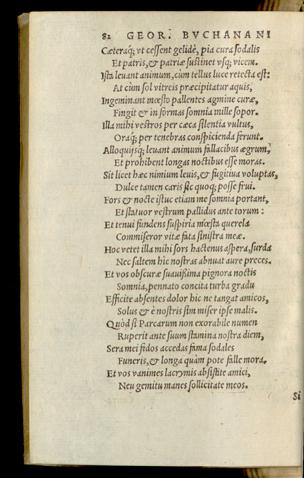 82 GEOR. BVCHANANI
Cæteraq́; vt cessent gelidè, pia cura sodalis
Et patris, & patriæ sustinet vsq; vicem.
Ista leuant animum, cùm tellus luce retecta est:
At cùm sol vitreis præcipitatur aquis,
Ingeminant mœsto pallentes agmine curæ,
Fingit & in formas somnia mille sopor.
Illa mihi vestros per cæca silentia vultus,
Oraq́; per tenebras conspicienda ferunt.
Alloquijsq; leuant animum fallacibus ægrum,
Et prohibent longas noctibus esse moras.
Sit licet hæc nimium leuis, & fugitiua voluptas,
Dulce tamen caris sic quoq; posse frui.
Fors & nocte istuc etiam me somnia portant,
Et statuor vestrum pallidus ante torum:
Et tenui fundens suspiria mœsta querela
Commiseror vitæ fata sinistra meæ.
Hoc vetet illa mihi sors hactenus aspera, surdæ
Nec saltem hîc nostras abnuat aure preces.
Et vos obscuræ suauissima pignora noctis
Somnia, pennato concita turba gradu
Efficite absentes dolor hic ne tangat amicos,
Solus & è nostris sim miser ipse malis.
Quòd si Parcarum non exorabile numen
Ruperit ante suum stamina nostra diem,
Sera mei fidos accedas fama sodales
Funeris, & longa quàm pote falle mora.
Et vos vanimes lacrymis absistite amici,
Neu gemitu manes sollicitate meos.
Si